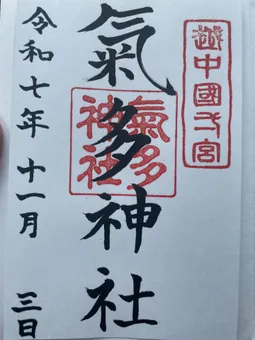 越中國一宮
氣多神社
氣多神社
令和七年 十一月 三日